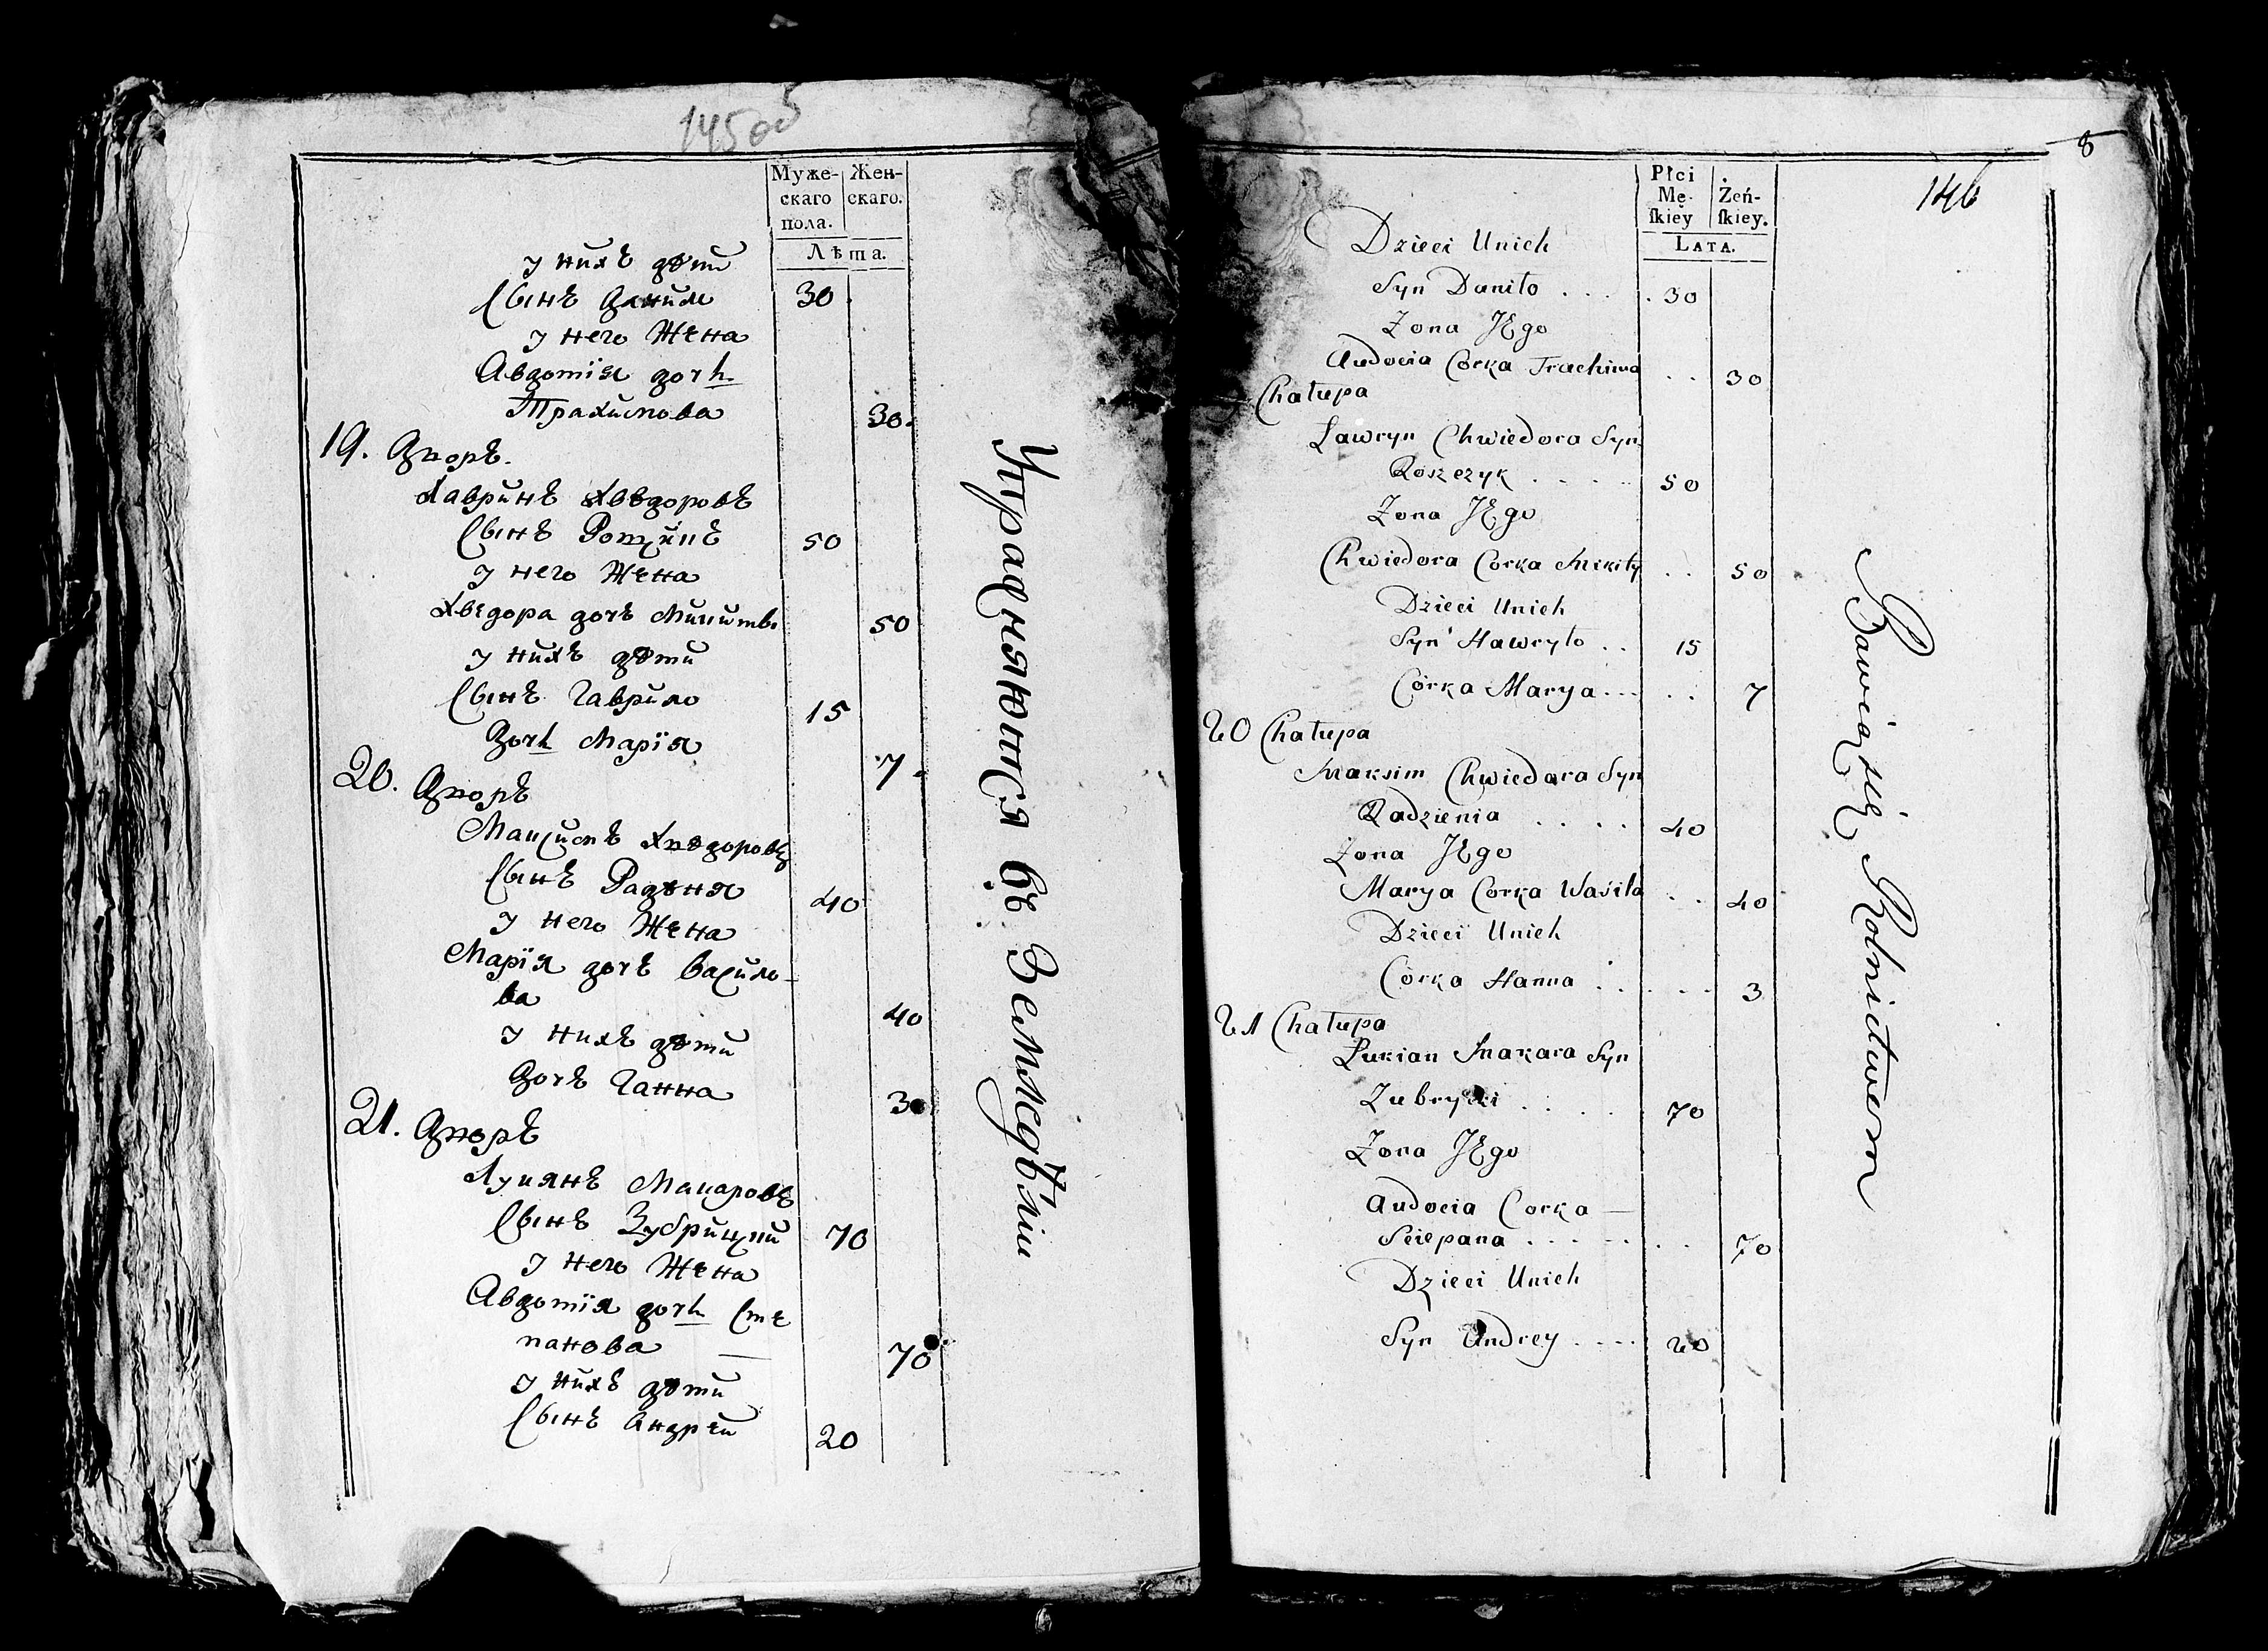 145об
Муже-
скаго
пола.
Жен-
скаго.
Лѣта.
у нихъ дѣти
Сынъ Данило 30
у него Жена
Авдотія дочь
Трахимова 30.
19. Дворъ.
Лавринъ Хведоровъ
Сынъ Рощикъ 50
у него Жена
Хведора дочь Микиты 50
у нихъ дѣти
Сынъ Гаврило 15
Дочь Марія 7.
20. Дворъ
Максимъ Хведоровъ
Сынъ Радѣня 40
у него Жена
Марія дочь Васило-
ва 40
у нихъ дѣти
Дочь Ганна 3
21. Дворъ
Лукянъ Макаровъ
Сынъ Зубрицкий 70
у него Жена
Авдотія дочь Сте
панова 70
у нихъ дѣти
Сынъ Андрей 20
Упражняются въ Земледѣліи
8
146
Płci
Mę-
ſkiey
Żeń-
ſkiey.
LATA.
Dzieci Unich
Syn Daniło . . . . 30
Zona JEgo
Audocia Corka Trachima . . 30
Chałupa
Ławryn Chwiedora Syn
Roszczyk . . . . . 50
Zona JEgo
Chwiedora Corka Mikity . . 50
Dzieci Unich
Syn Hawryło . . 15
Corka Marya . . . . . 7
20 Chałupa
Maksim Chwiedora Syn
Radzienia . . . . 40
Zona JEgo
Marya Corka Wasila . . 40
Dzieci Unich
Corka Hanna . . . . . 3
21 Chałupa
Łukian Makara Syn
Zubrycki . . . . 70
Zona JEgo
Audocia Corka —
Sciepana . . . . . . . 70
Dzieci Unich
Syn Andrey . . . . 20
Bawią się Rolnictwem